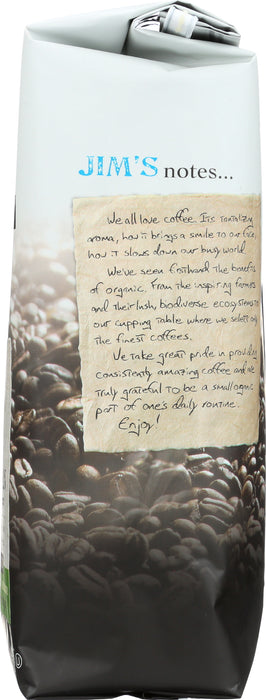 JIM'S notes...
We all love coffee. Its tantalizing
aroma, how it brings a smile to our face,
how it slows down our busy world.
We've seen firsthand the benefits
of organic, from the inspiring farmers
and their lush, biodiverse ecosystems to
our cupping table where we select only
the finest coffees.
We take great pride in providing
consistently amazing coffee and are
truly grateful to be a small organic
part of one's daily routine.
Enjoy!
D